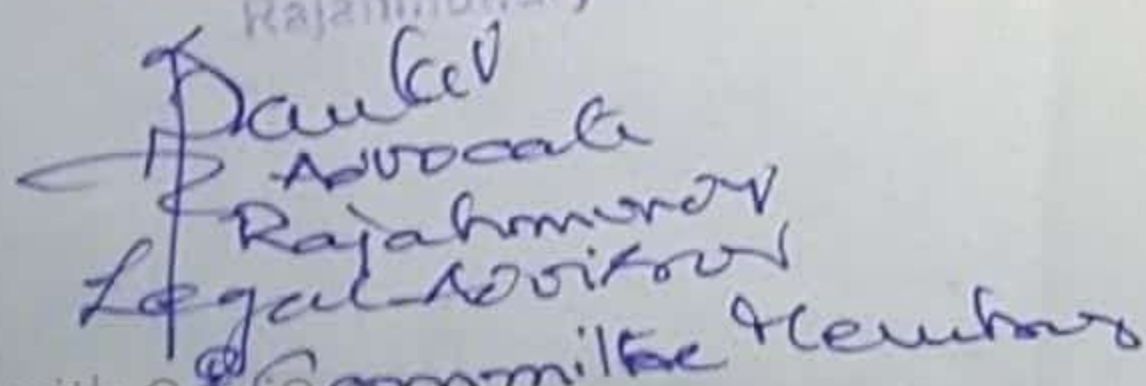 Rajahmundry
Advocate
Rajahmundry
Legal Advisor
Committee Member